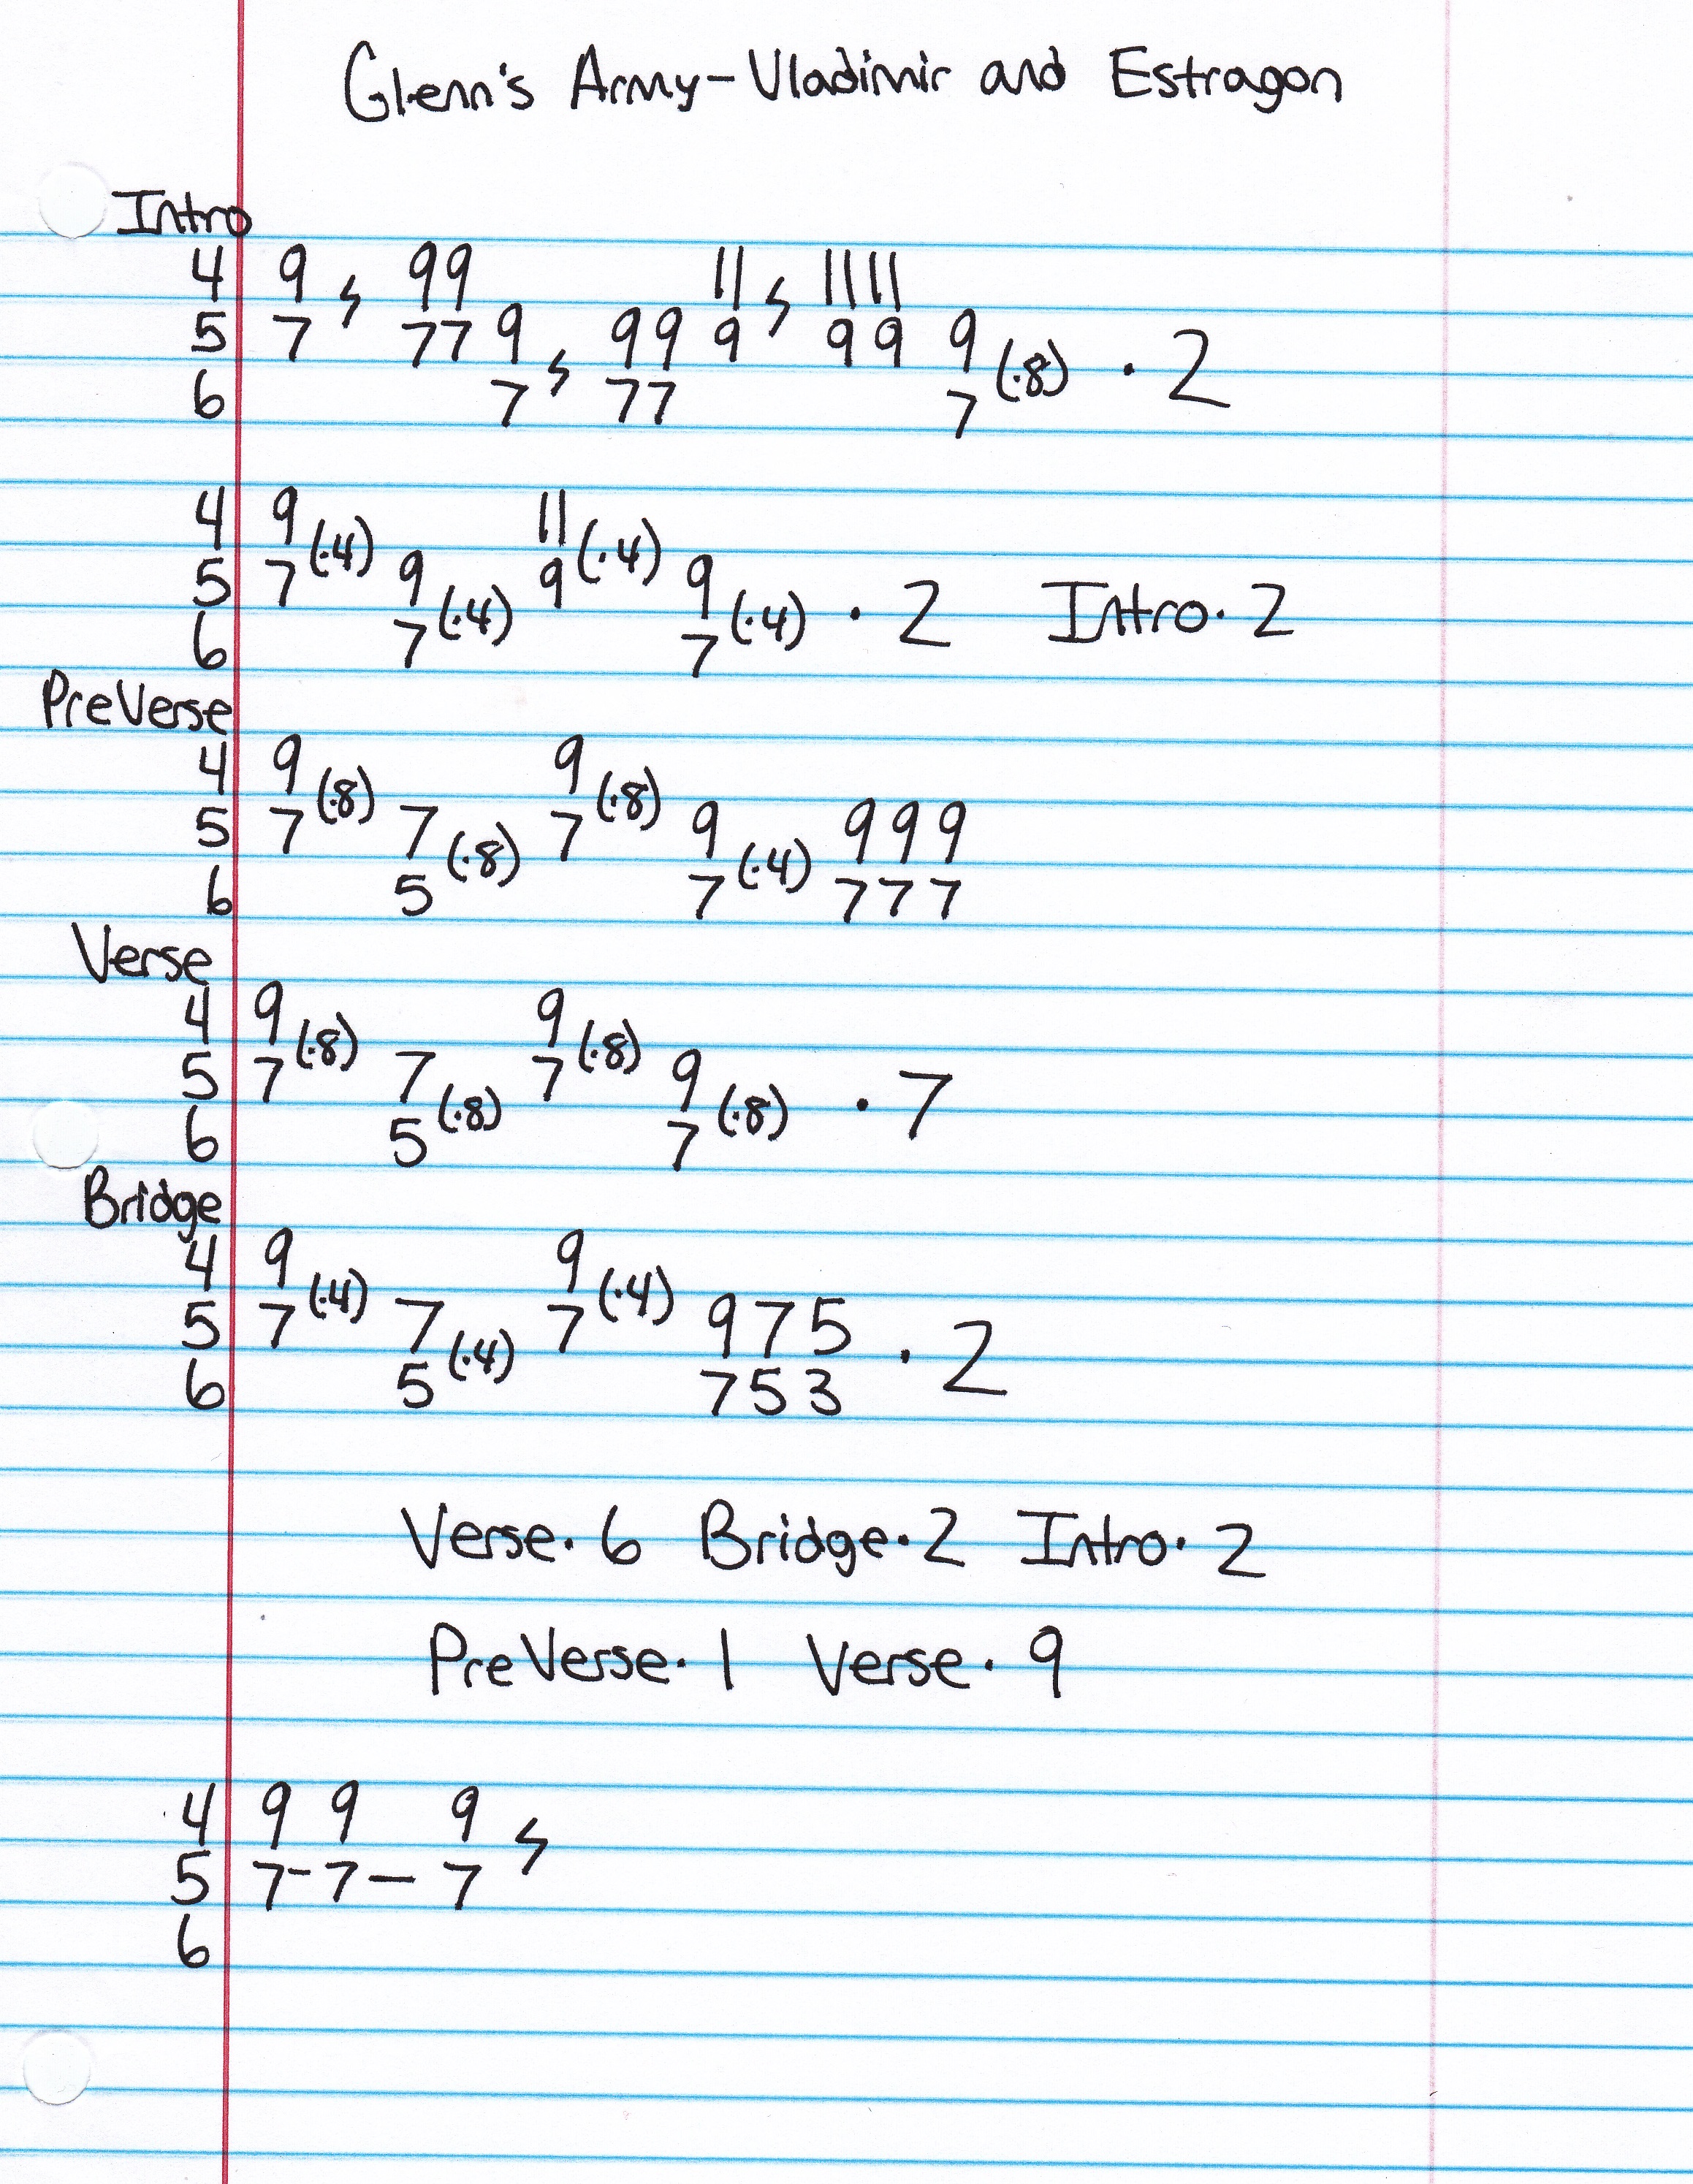 Glenn's Army-Vladimir and Estragon
Intro
4 9 𝄽 99 11 𝄽 11 11
5 7 77 9 𝄽 99 9 99 9 (·8) · 2
6 7 77 7
4 9 (·4) 11 (·4)
5 7 9 (·4) 9 9 (·4) · 2 Intro · 2
6 7 7
PreVerse
4 9 (·8) 9 (·8)
5 7 7 (·8) 7 9 (·4) 9 9 9
6 5 7 7 7 7
Verse
4 9 (·8) 9 (·8)
5 7 7 (·8) 7 9 (·8) · 7
6 5 7
Bridge
4 9 (·4) 9 (·4)
5 7 7 (·4) 7 9 7 5 · 2
6 5 7 5 3
Verse · 6 Bridge · 2 Intro · 2
PreVerse · 1 Verse · 9
4 9 9 9 𝄽
5 7-7-7
6